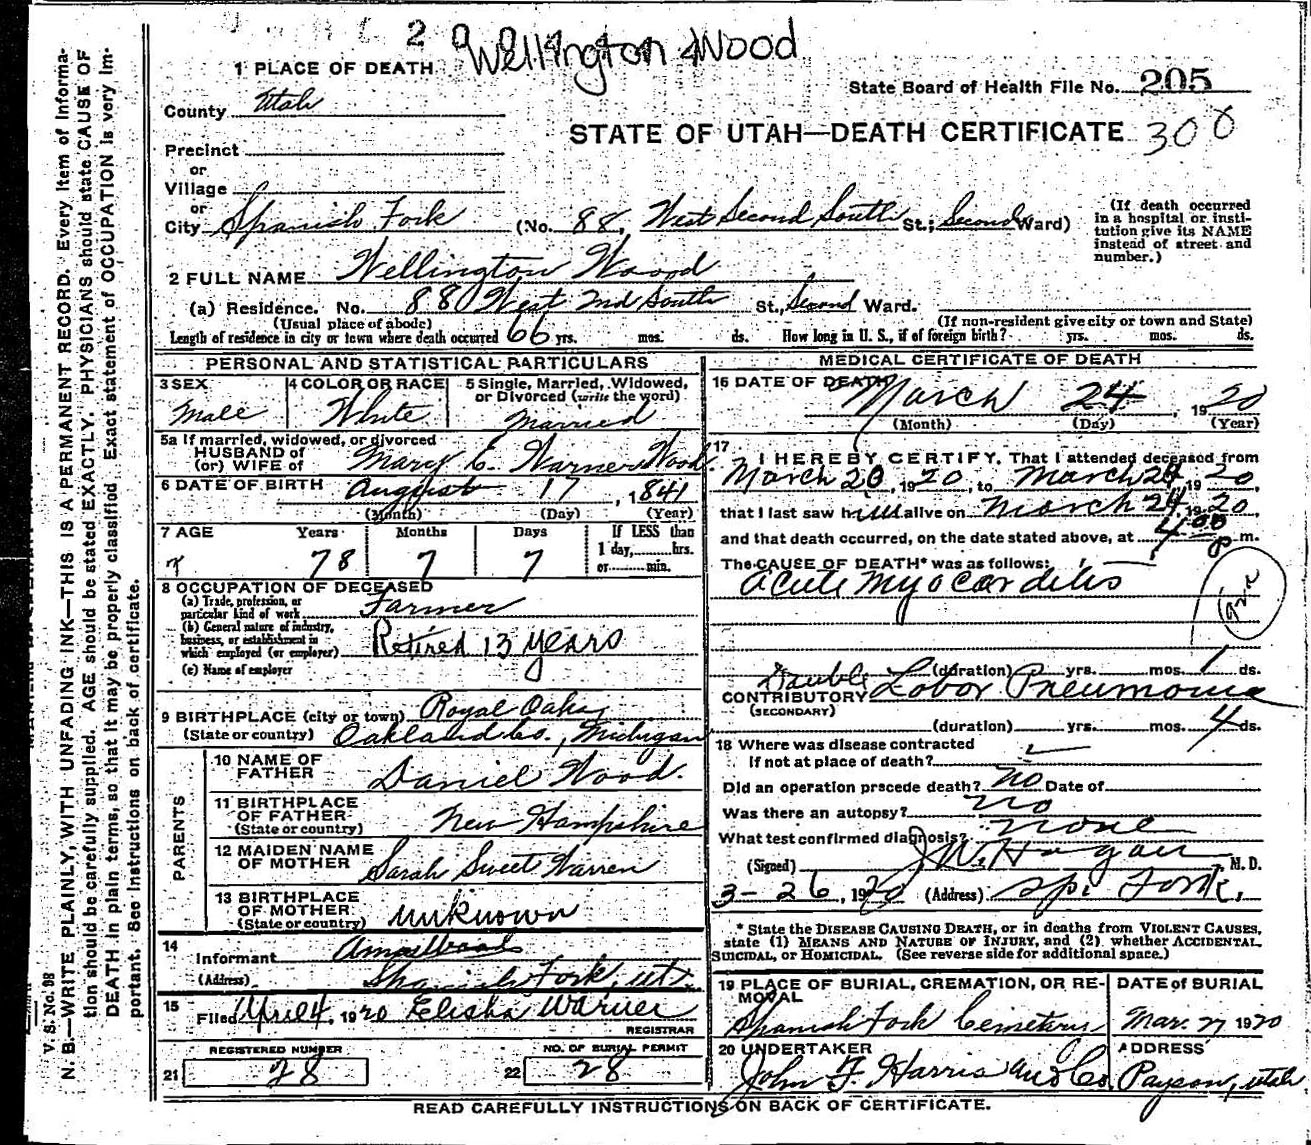 2 Wellington Wood
1 PLACE OF DEATH
State Board of Health File No. 205
County Utah
STATE OF UTAH—DEATH CERTIFICATE 300
Precinct
or
Village
or
City Spanish Fork (No. 88, West Second South St.; Second Ward)
(If death occurred in a hospital or institution give its NAME instead of street and number.)
2 FULL NAME Wellington Wood
(a) Residence. No. 880 West 2nd South St., Second Ward.
(Usual place of abode) (If non-resident give city or town and State)
Length of residence in city or town where death occurred 66 yrs. mos. ds. How long in U. S., if of foreign birth? yrs. mos. ds.
PERSONAL AND STATISTICAL PARTICULARS
3 SEX 4 COLOR OR RACE 5 Single, Married, Widowed, or Divorced (write the word)
Male White Married
5a If married, widowed, or divorced
HUSBAND of
(or) WIFE of Mary E. Warner Wood
6 DATE OF BIRTH August 17, 1841
(Month) (Day) (Year)
7 AGE Years Months Days If LESS than
1 day, hrs.
or min.
78 7 7
8 OCCUPATION OF DECEASED
(a) Trade, profession, or
particular kind of work Farmer
(b) General nature of industry,
business, or establishment in
which employed (or employer) Retired 13 years
(c) Name of employer
9 BIRTHPLACE (city or town) Royal Oaks,
(State or country) Oakland Co., Michigan
PARENTS
10 NAME OF
FATHER Daniel Wood.
11 BIRTHPLACE
OF FATHER
(State or country) New Hampshire
12 MAIDEN NAME
OF MOTHER Sarah Sweet Warren
13 BIRTHPLACE
OF MOTHER
(State or country) Unknown
14
Informant
(Address) Spanish Fork, Ut.
15
Filed April 4, 1920 Elisha Warner
REGISTRAR
REGISTERED NUMBER NO. OF BURIAL PERMIT
21 28 22 28
MEDICAL CERTIFICATE OF DEATH
16 DATE OF DEATH March 24, 1920
(Month) (Day) (Year)
17
I HEREBY CERTIFY, That I attended deceased from
March 20, 1920, to March 24, 1920,
that I last saw him alive on March 24, 1920
and that death occurred, on the date stated above, at 4:00 p m.
The CAUSE OF DEATH* was as follows:
Acute Myocarditis
(duration) yrs. mos. 1 ds.
CONTRIBUTORY Double Lobor Pneumonia
(SECONDARY)
(duration) yrs. mos. 4 ds.
18 Where was disease contracted
If not at place of death?
Did an operation precede death? No Date of
Was there an autopsy? no
What test confirmed diagnosis? none
(Signed) J.W. Hagan M. D.
3-26, 1920 (Address) Sp. Fork,
* State the DISEASE CAUSING DEATH, or in deaths from VIOLENT CAUSES,
state (1) MEANS AND NATURE OF INJURY, and (2) whether ACCIDENTAL,
SUICIDAL, or HOMICIDAL. (See reverse side for additional space.)
19 PLACE OF BURIAL, CREMATION, OR RE- DATE of BURIAL
MOVAL
Spanish Fork Cemetery Mar. 27 1920
20 UNDERTAKER ADDRESS
John F. Harris and Co. Payson, Utah
READ CAREFULLY INSTRUCTIONS ON BACK OF CERTIFICATE.
V. S. No. 98
N. B—WRITE PLAINLY, WITH UNFADING INK—THIS IS A PERMANENT RECORD. Every item of Informa-
tion should be carefully supplied. AGE should be stated EXACTLY. PHYSICIANS should state CAUSE OF
DEATH in plain terms, so that it may be properly classified. Exact statement of OCCUPATION is very im-
portant. See instructions on back of certificate.